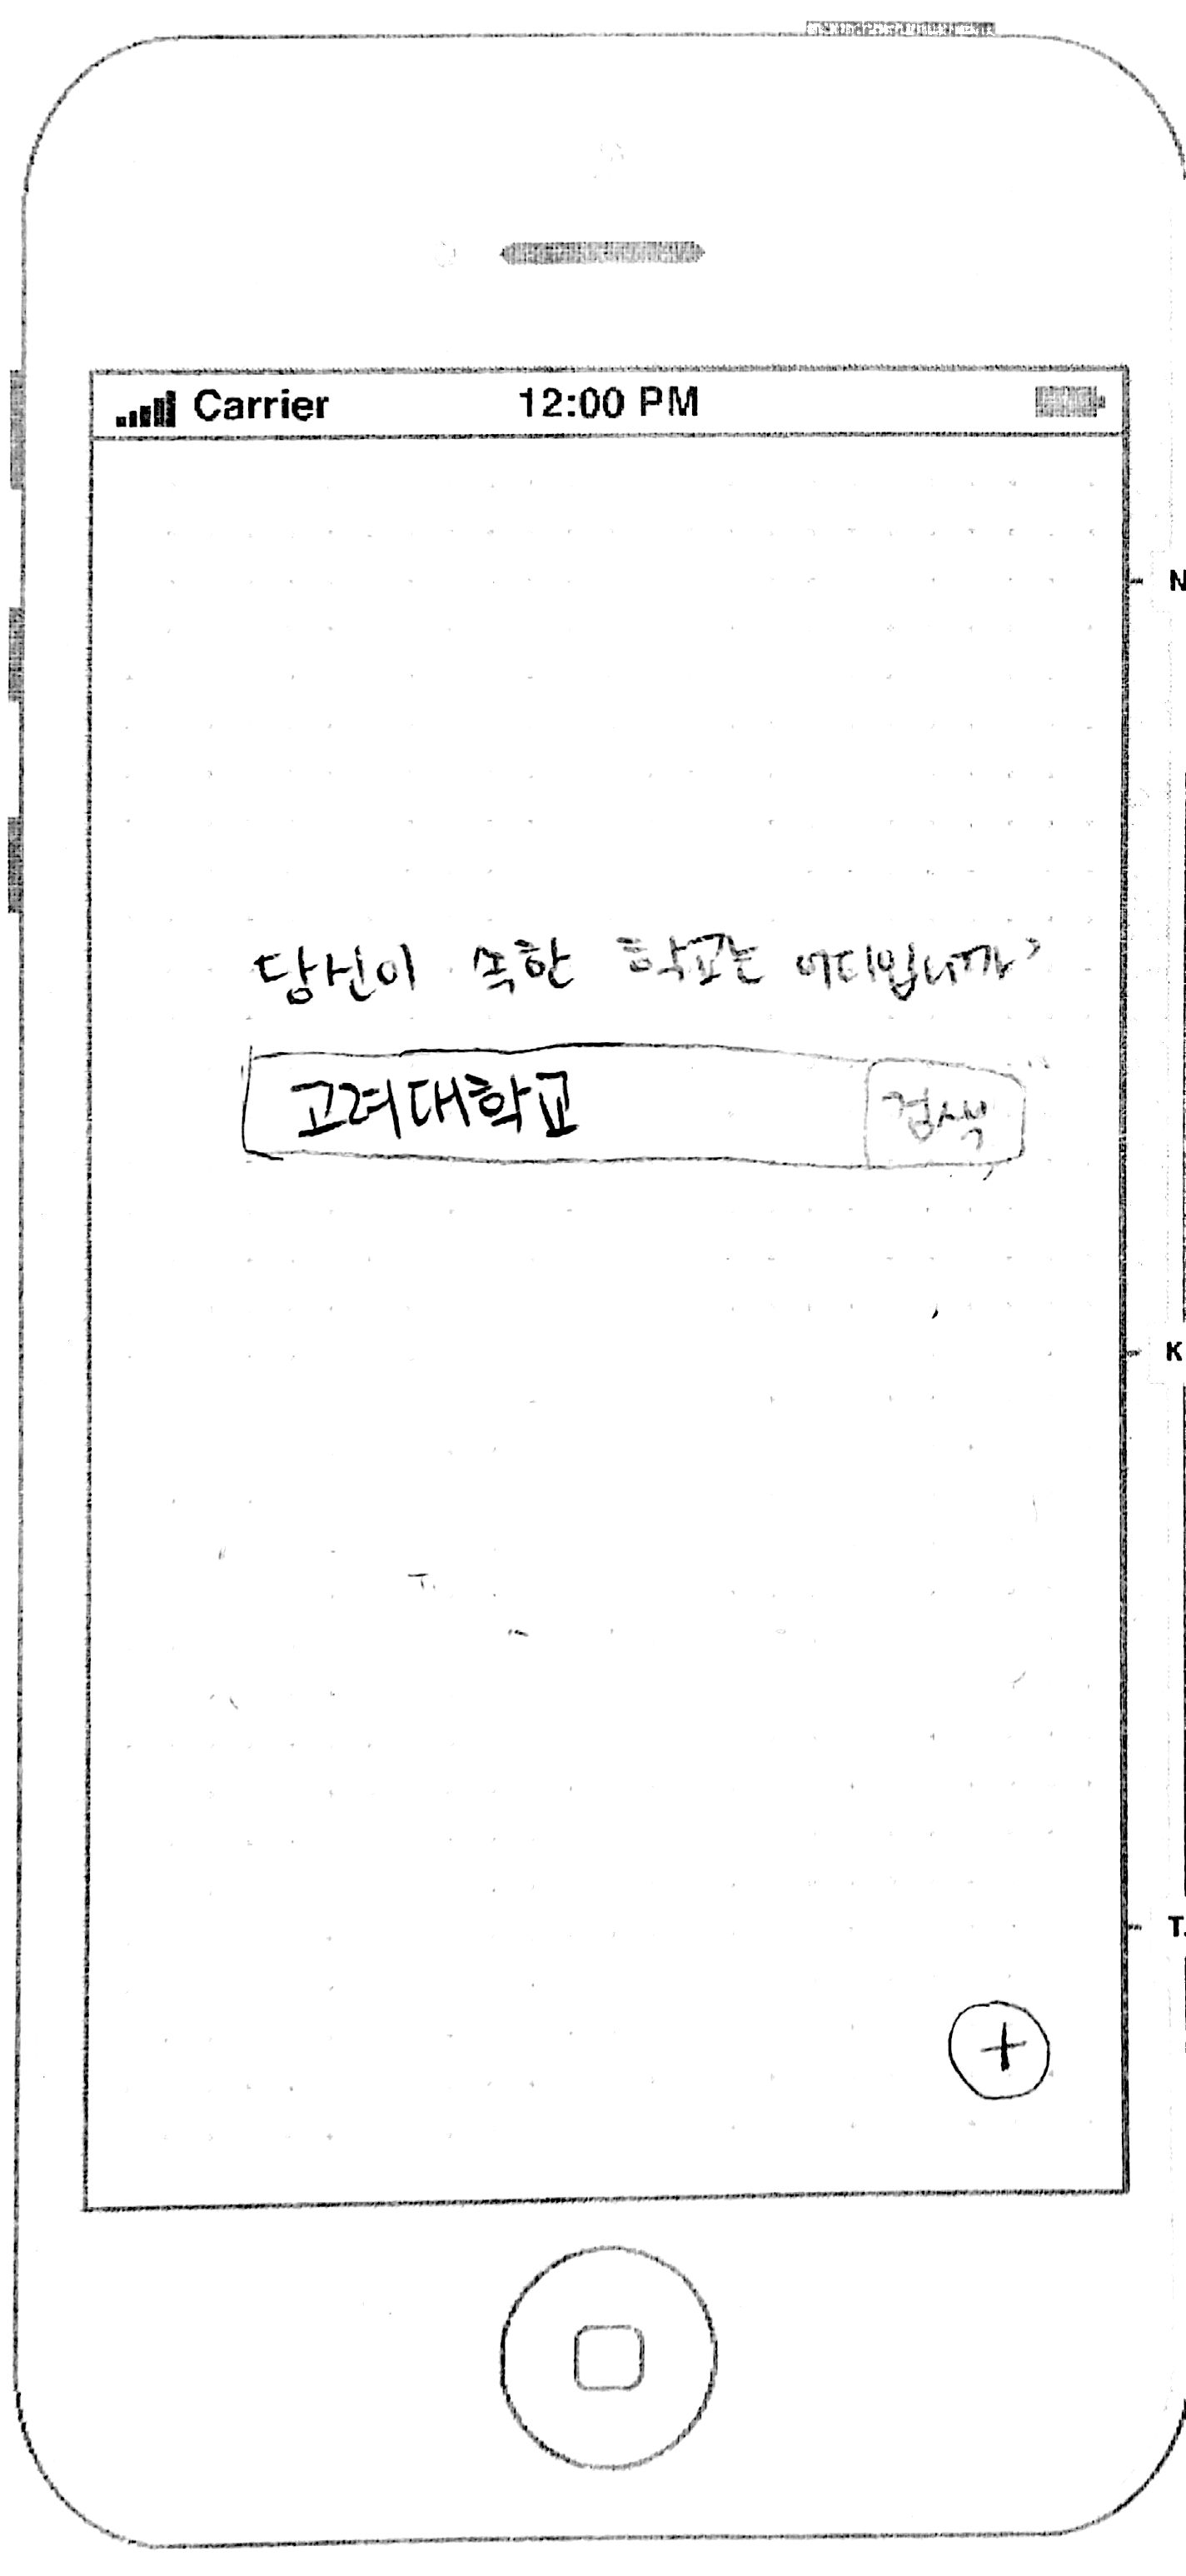 Carrier 12:00 PM
N
당신이 속한 학교는 어디입니까?
고려대학교 검색
K
T.
+